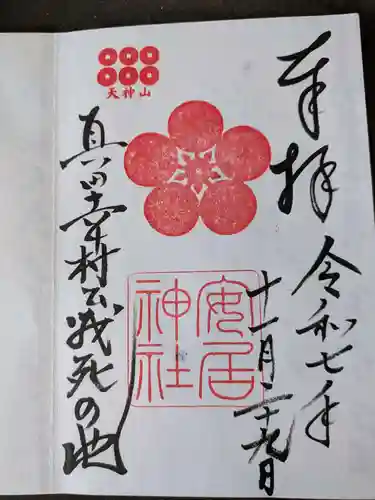 奉拝
令和七年
十一月二十九日
安居
神社
天神山
真田幸村公戦死の地